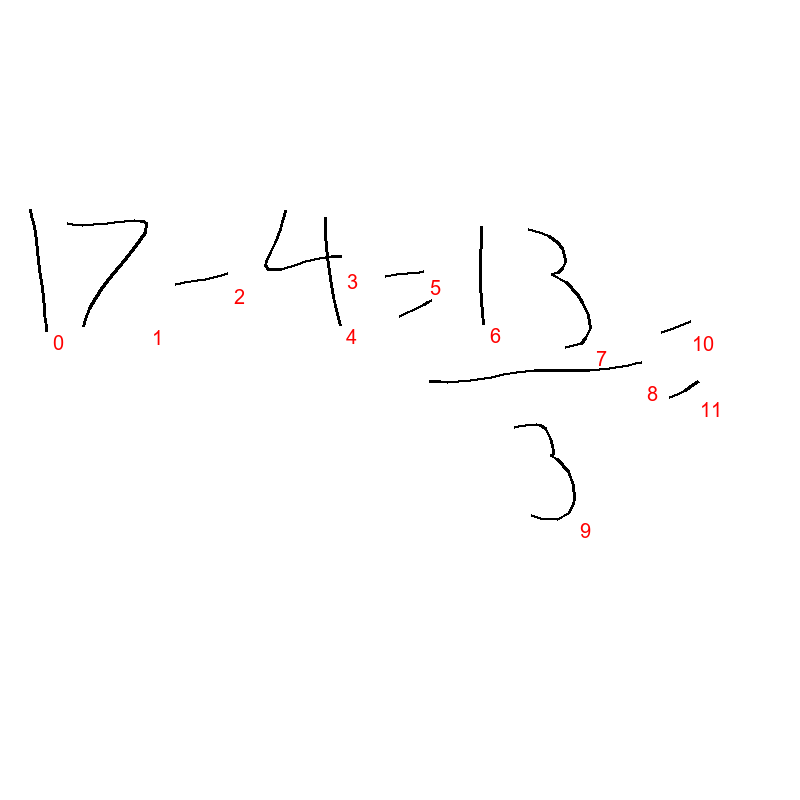 17 - 4 = 13 =
3
0 1 2 3 4 5 6 7 8 9 10 11